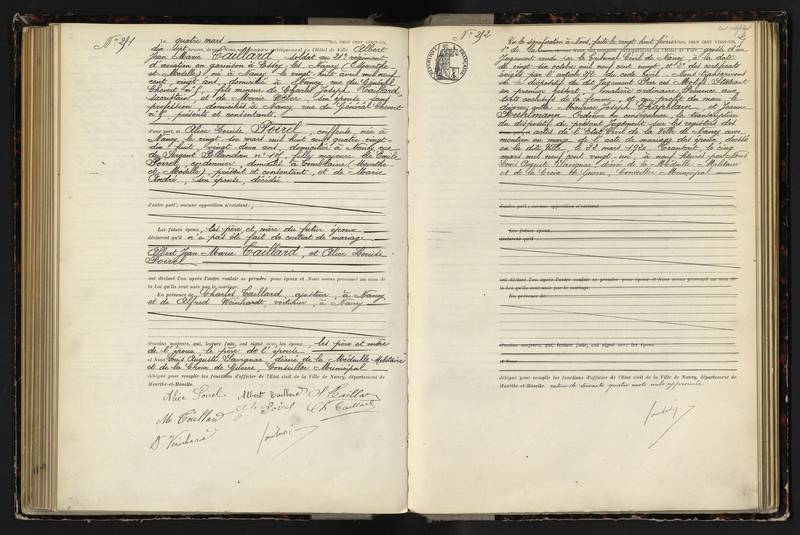 N° 271
Le quatre mars mil neuf cent vingt-un,
dix sept heures, devant Nous ont comparu publiquement en l'Hôtel de Ville Albert
Jean Marie Caillard, soldat au 21e régiment
d'aviation en garnison à Essey-lès-Nancy (Meurthe-
et-Moselle), né à Nancy, le vingt huit avril mil neuf
cent, vingt ans, domicilié à Nancy, rue du Général
Chevert n° 5, fils mineur de Charles Joseph Caillard,
sacristain et de Marie Weber, son épouse, sans
profession, domiciliés à Nancy rue du Général Chevert
n° 5, présents et consentants.
d'une part, et Alice Louise Poirel, coiffeuse, née à
Nancy, le vingt six mars mil huit cent quatre vingt-
dix huit, vingt deux ans, domiciliée à Nancy, rue
du Sergent Blandan n° fille majeure de Emile
Poirel, cordonnier, domicilié à (Meurthe-
et-Moselle), présent et consentant, et de Marie
André, son épouse, décédée.
d'autre part; aucune opposition n'existant.
Les futurs époux, les père et mère du futur époux
déclarent qu'il n'a pas été fait de contrat de mariage
Albert Jean Marie Caillard, et Alice Louise
Poirel
ont déclaré l'un après l'autre vouloir se prendre pour époux et Nous avons prononcé au nom de
la Loi qu'ils sont unis par le mariage.
En présence de Charles Caillard, ajusteur, à Nancy
et de Alfred Weinhardt, à Nancy
témoins majeurs, qui, lecture faite, ont signé avec les époux, les père et mère
de l'époux, le père de l'épouse
et Nous Louis Auguste Savignac, décoré de la Médaille Militaire
et de la Croix de Guerre, Conseiller Municipal
délégué pour remplir les fonctions d'officier de l'Etat civil de la Ville de Nancy, département de
Meurthe-et-Moselle.
Alice Poirel Albert Caillard
M Caillard Poirel Ch Caillard
N° 272
De la signification à Nous faite le vingt huit février mil neuf cent vingt-un,
grosse d'un
jugement rendu par le Tribunal Civil de Nancy, à la date
du vingt six octobre mil neuf cent vingt, et des certificats
exigés par l'article 252 du code civil. Nous transcrivons
ici le dispositif du dit jugement: Par ces Motifs, Statuant
en premier ressort, matière ordinaire, Prononce aux
torts exclusifs de la femme, et au profit du mari, le
divorce entre: Maurice Joseph Chapelain, et Jeanne
Ordonne en conséquence la transcription
du dispositif du présent Jugement sur les registres des
actes de l'Etat Civil de la Ville de Nancy, avec
mention en marge de l'acte de mariage des époux, dressé
en la dite Ville, le 22 mars 1920. Transcrit, le cinq
mars mil neuf cent vingt un, à neuf heures par Nous
Louis Auguste Savignac, décoré de la Médaille Militaire
et de la Croix de Guerre, Conseiller Municipal
d'autre part; aucune opposition n'existant.
Les futurs époux,
déclarent qu'il
ont déclaré l'un après l'autre vouloir se prendre pour époux et Nous avons prononcé au nom de
la Loi qu'ils sont unis par le mariage.
En présence de
témoins majeurs, qui, lecture faite, ont signé avec les époux
et Nous
délégué pour remplir les fonctions d'officier de l'Etat civil de la Ville de Nancy, département de
Meurthe-et-Moselle. soixante quatre mots nuls approuvés